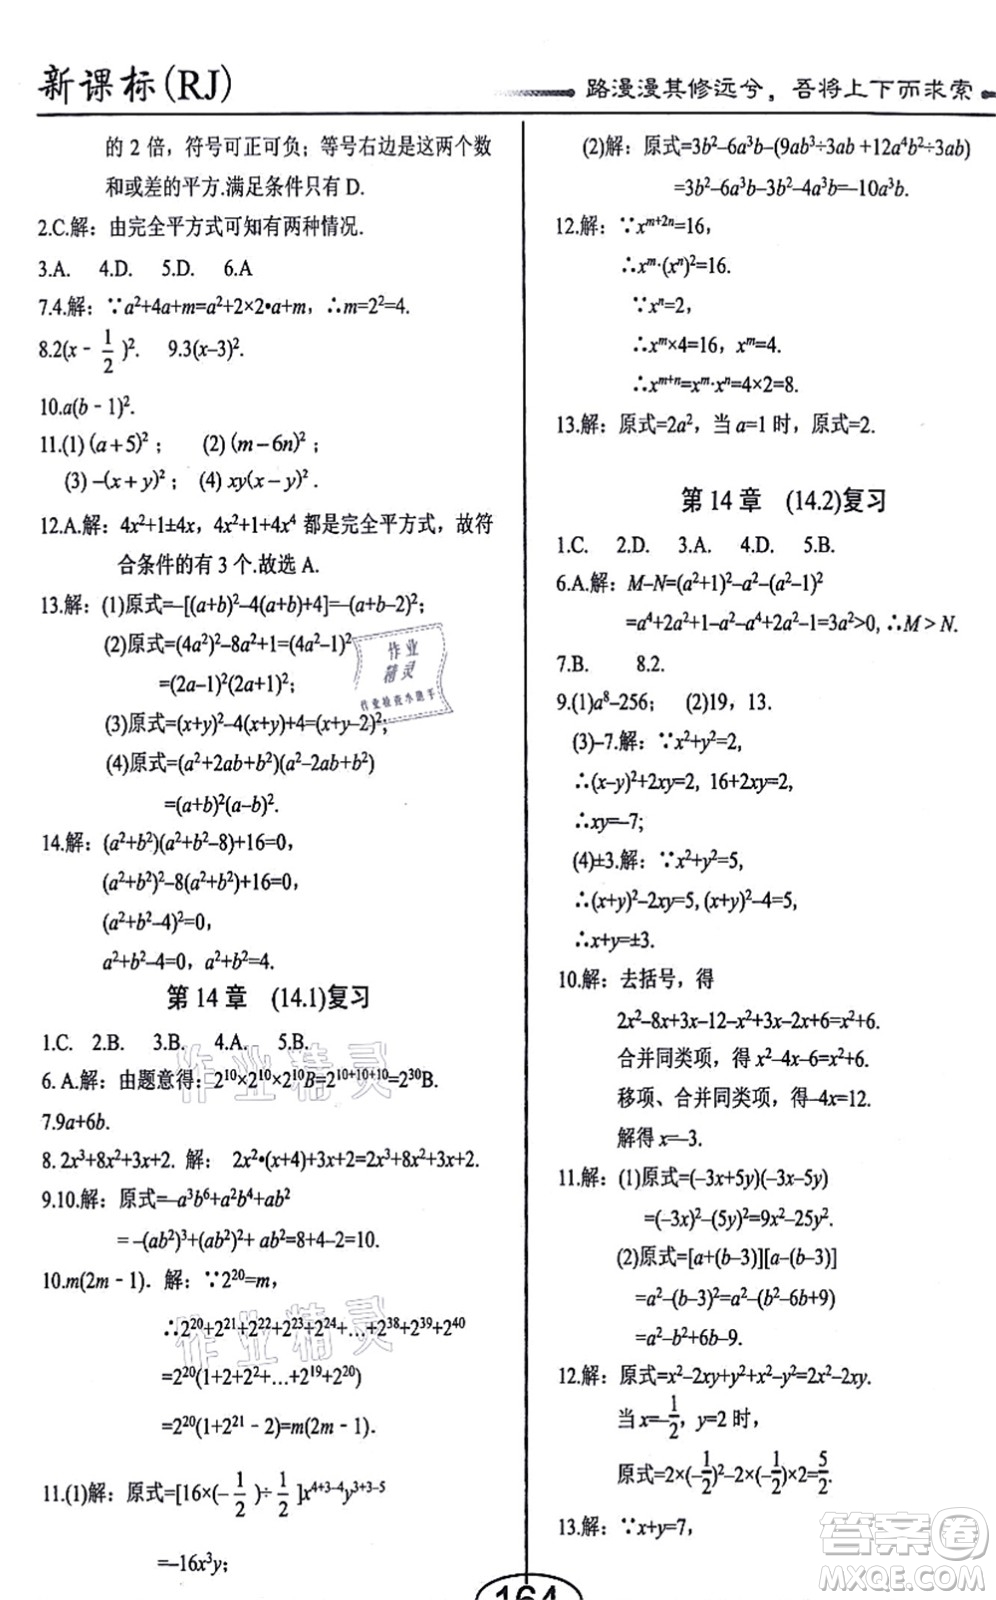 新课标(RJ)
路漫漫其修远兮，吾将上下而求索
的 2 倍，符号可正可负；等号右边是这两个数
和或差的平方.满足条件只有 D.
2.C.解：由完全平方式可知有两种情况.
3.A. 4.D. 5.D. 6.A
7.4.解：∵a²+4a+m=a²+2×2•a+m，∴m=2²=4.
8.2(x - 1/2 )². 9.3(x–3)².
10.a(b - 1)².
11.(1) (a+5)²； (2) (m−6n)²；
(3) −(x+y)²； (4) xy(x−y)².
12.A.解：4x²+1±4x，4x²+1+4x⁴ 都是完全平方式，故符
合条件的有 3 个.故选 A.
13.解：(1)原式=–[(a+b)²–4(a+b)+4]=–(a+b–2)²；
(2)原式=(4a²)²–8a²+1=(4a²–1)²
=(2a–1)²(2a+1)²；
(3)原式=(x+y)²–4(x+y)+4=(x+y–2)²；
(4)原式=(a²+2ab+b²)(a²–2ab+b²)
=(a+b)²(a–b)².
14.解：(a²+b²)(a²+b²–8)+16=0，
(a²+b²)²–8(a²+b²)+16=0，
(a²+b²–4)²=0，
a²+b²–4=0，a²+b²=4.
第 14 章 (14.1)复习
1.C. 2.B. 3.B. 4.A. 5.B.
6. A.解：由题意得：2¹⁰×2¹⁰×2¹⁰B=2¹⁰⁺¹⁰⁺¹⁰=2³⁰B.
7.9a+6b.
8. 2x³+8x²+3x+2. 解： 2x²•(x+4)+3x+2=2x³+8x²+3x+2.
9.10.解：原式=–a³b⁶+a²b⁴+ab²
= –(ab²)³+(ab²)²+ ab²=8+4–2=10.
10.m(2m - 1)．解：∵2²⁰=m，
∴2²⁰+2²¹+2²²+2²³+2²⁴+…+2³⁸+2³⁹+2⁴⁰
=2²⁰(1+2+2²+…+2¹⁹+2²⁰)
=2²⁰(1+2²¹ - 2)=m(2m - 1).
11.(1)解：原式=[16×(- 1/2 )÷ 1/2 ]x⁴⁺³⁻⁴y³⁺³⁻⁵
=–16x³y；
(2)解：原式=3b²–6a³b–(9ab³÷3ab +12a⁴b²÷3ab)
=3b²–6a³b–3b²–4a³b=–10a³b.
12.解：∵xᵐ⁺²ⁿ=16，
∴xᵐ·(xⁿ)²=16.
∵xⁿ=2，
∴xᵐ×4=16，xᵐ=4.
∴xᵐ⁺ⁿ=xᵐ·xⁿ=4×2=8.
13.解：原式=2a²，当 a=1 时，原式=2.
第 14 章 (14.2)复习
1.C. 2.D. 3.A. 4.D. 5.B.
6.A.解：M–N=(a²+1)²–a²–(a²–1)²
=a⁴+2a²+1–a²–a⁴+2a²–1=3a²>0，∴M > N.
7.B. 8.2.
9.(1)a⁸–256； (2)19，13.
(3)–7.解：∵x²+y²=2，
∴(x–y)²+2xy=2，16+2xy=2，
∴xy=–7；
(4)±3.解：∵x²+y²=5，
∴(x+y)²–2xy=5，(x+y)²–4=5，
∴x+y=±3.
10.解：去括号，得
2x²–8x+3x–12–x²+2x–3x+6=x²+6.
合并同类项，得 x²–4x–6=x²+6.
移项、合并同类项，得–4x=12.
解得 x=–3.
11.解：(1)原式=(–3x+5y)(–3x–5y)
=(–3x)²–(5y)²=9x²–25y².
(2)原式=[a+(b–3)][a–(b–3)]
=a²–(b–3)²=a²–(b²–6b+9)
=a²–b²+6b–9.
12.解：原式=x²–2xy+y²+x²–y²=2x²–2xy.
当 x=–1/2，y=2 时，
原式=2×(–1/2)²–2×(–1/2)×2=5/2.
13.解：∵x+y=7，
164
作业
精灵
作业检查小助手
作业精灵
作业精灵
答案圈
MXQE.COM